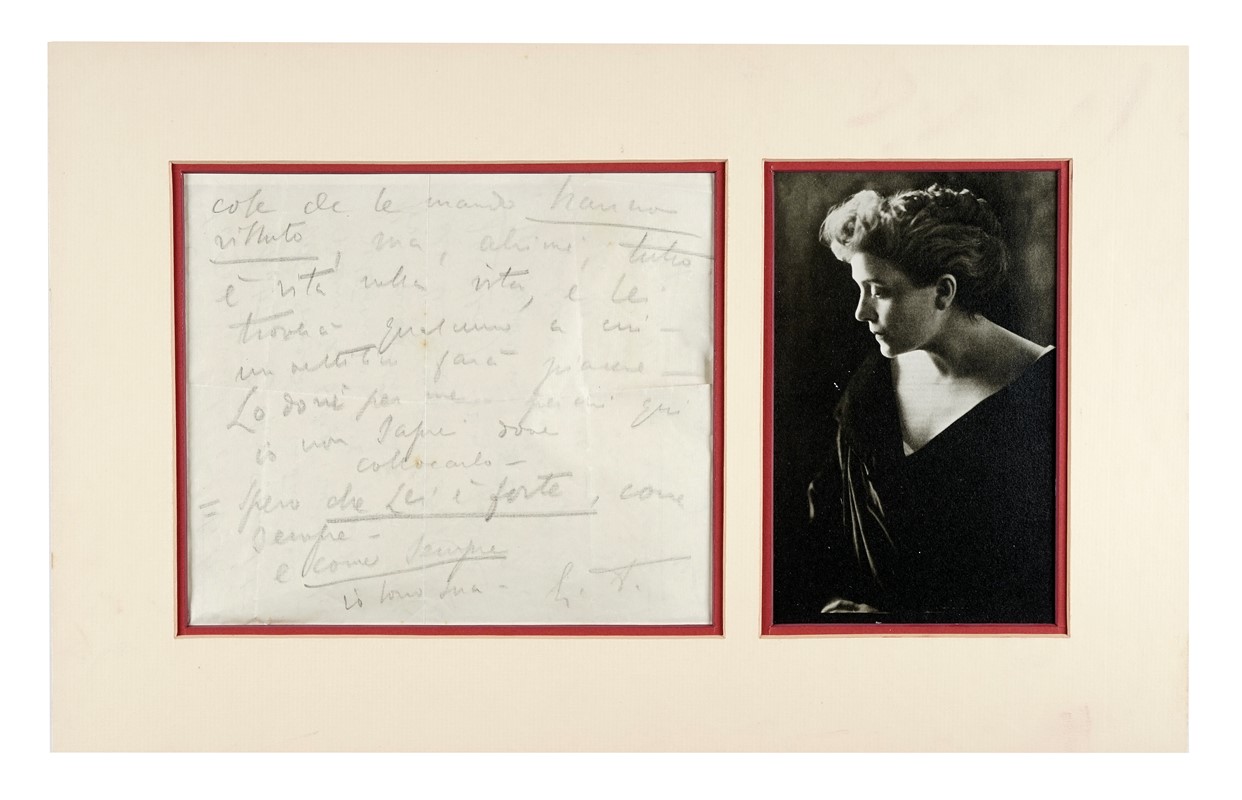 cose che le mando hanno
vissuto, ma, ahimè, tutto
è vita nella vita, e Lei
troverà qualcuno a cui –
un vestitino farà piacere –
Lo doni per me – perchè qui
io non saprei dove
collocarlo –
= Spero che Lei è forte, come
sempre –
e come sempre
io sono sua –